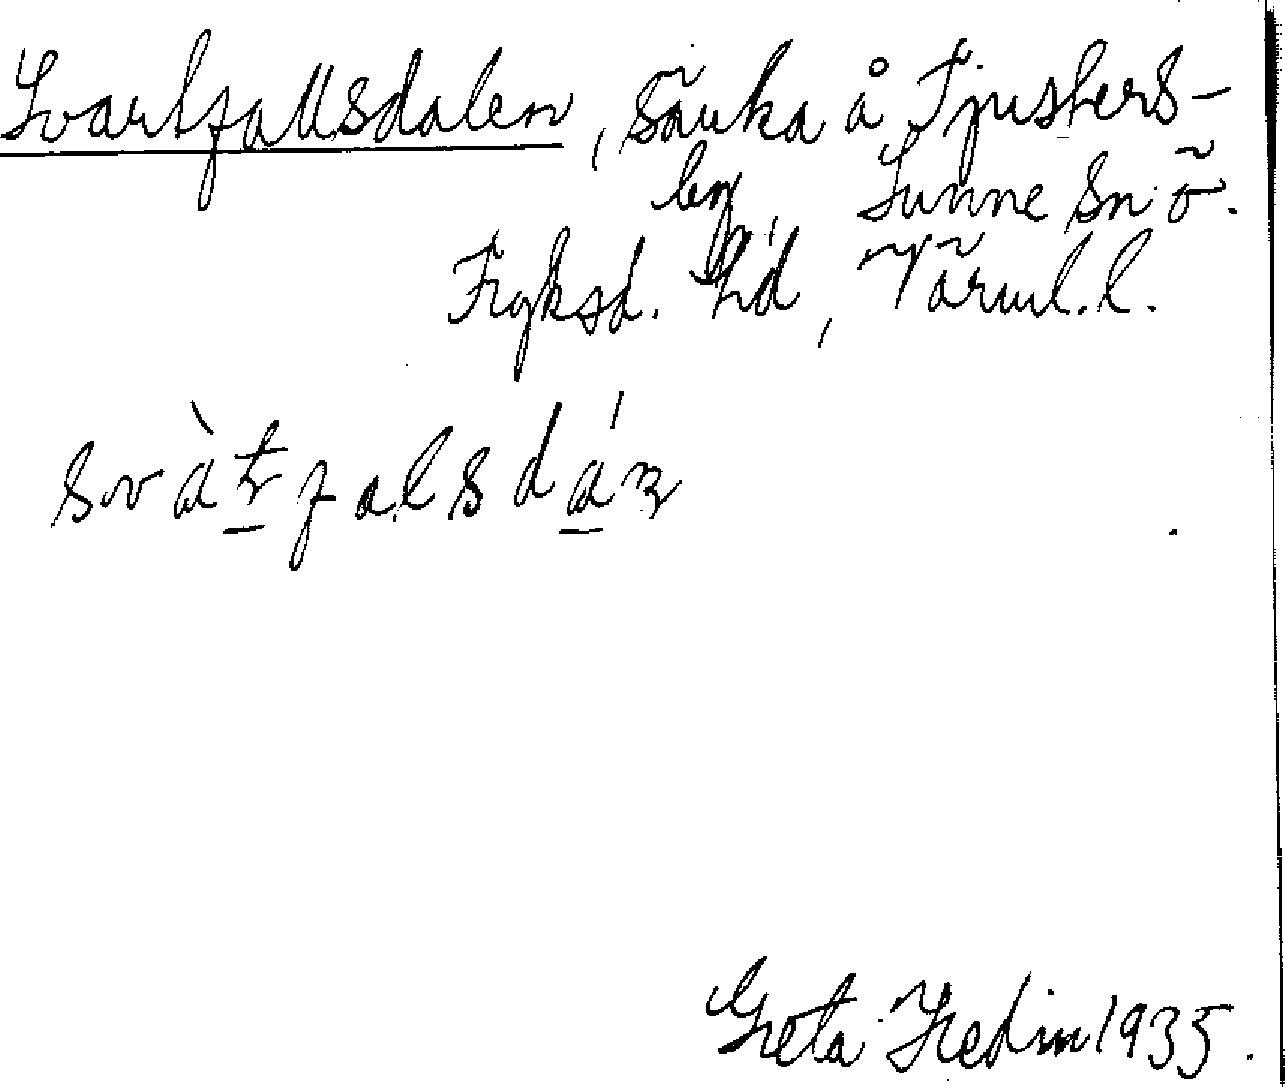 Svartfallsdalen, sänka å Fjusters-
by Sunne sn ö.
Fryksd. hd, Värml. l.
svàtfalsdán
Greta Hedin 1935.